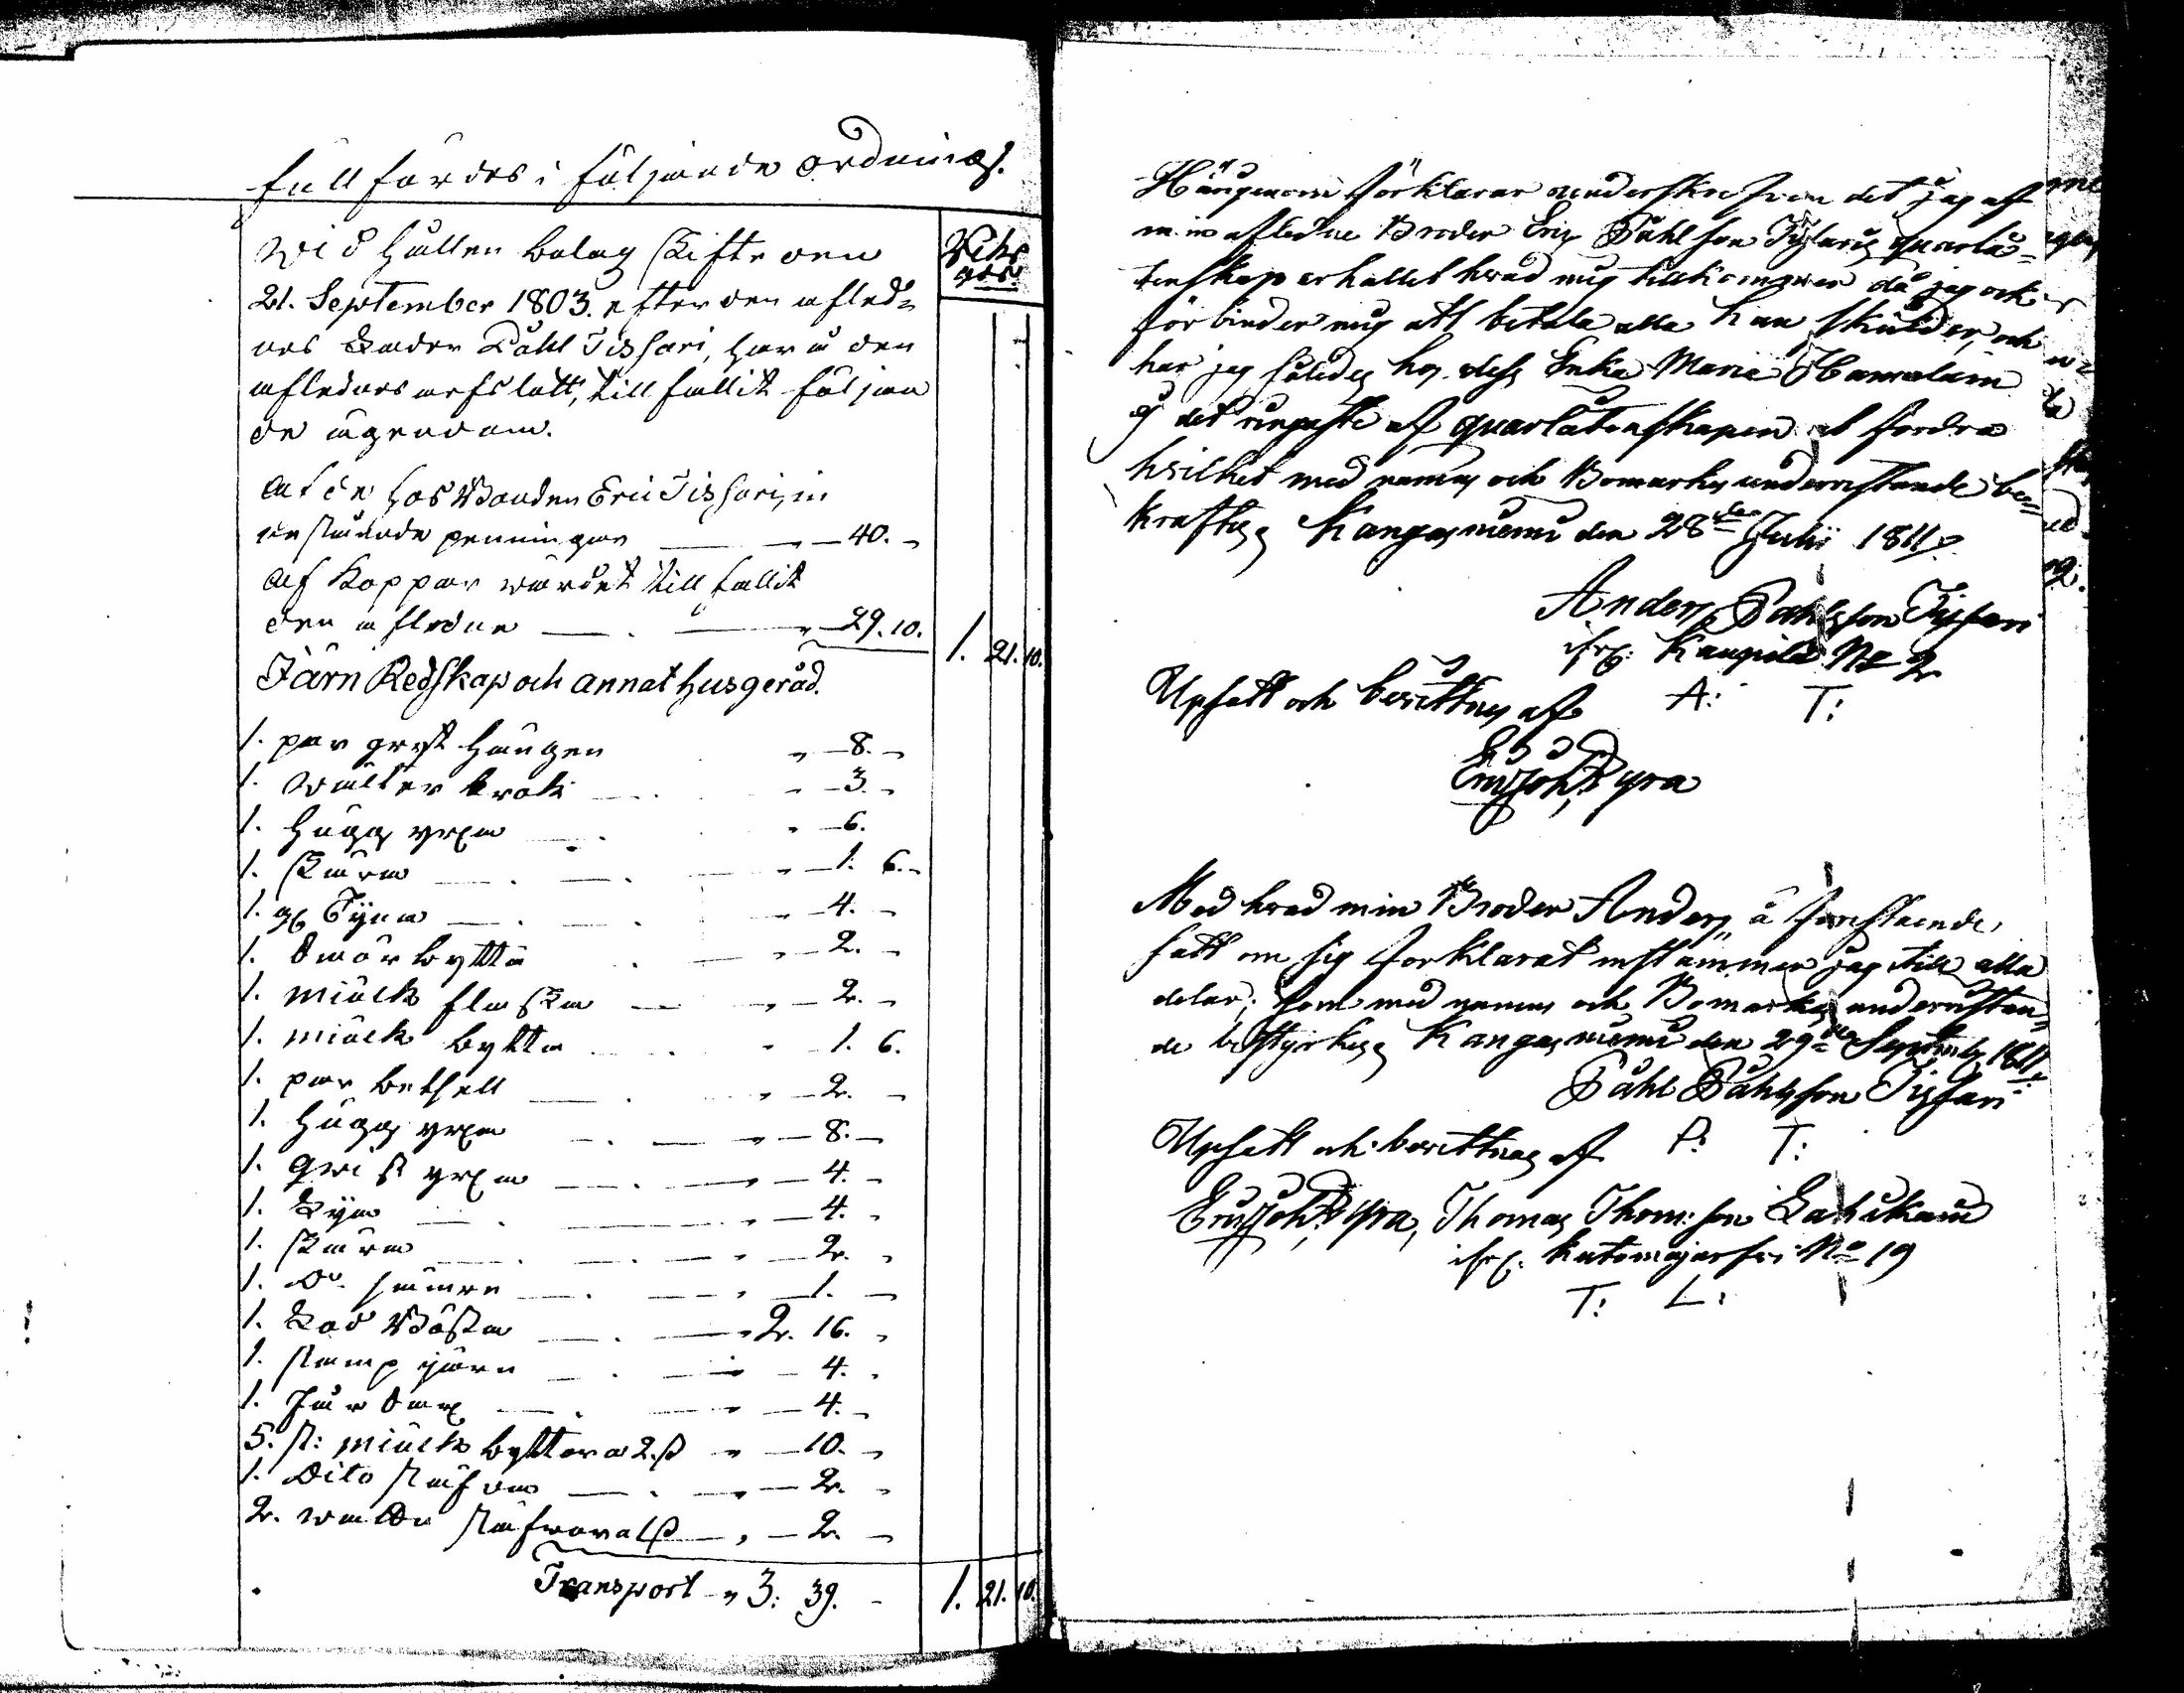 fullfördes i följande ordning.
Wid hållen bolag skifte den
21. September 1803. efter den afled=
nes Fader Påhl Tissari, har å den
aflednes arfslått, tillfallit följan
de ägendom.
Af de hos Bonden Eric Tissari, in
nestående penningar „ 40. „
Af Koppar wärdet tillfallit
den afledne „ 29. 10. 1. 21. 10.
Järn Redskap och annat husgeråd.
1. par grift hängen „ 8. „
1. wälter krok „ 3. „
1. hugg yxa „ 6.
1. skära „ 1. 6. „
1. gl Tyna „ 4. „
1. Smör bytta „ 2. „
1. miölk flaska „ 2. „
1. miölk bytta „ 1. 6.
1. par betsell „ 2. „
1. hugg yxa „ 8. „
1. qwist yxa „ 4. „
1. Lya „ 4. „
1. skära „ 2. „
1. Do sämre „ 1. „
1. Lod Bössa „ 2. 16. „
1. stamp järn „ 4. „
1. „ 4. „
5. st: miölk byttor a 2. ß „ 10. „
1. Dito stäfwa „ 2. „
2. stäfwor a 1 ß „ 2. „
Transport „ 3: 39. „ 1. 21. 10.
Härigenom förklarar underskrefven det jag af
min aflidne Broder Eric Påhlson Tissaris quarlå=
tenskap erhallit hvad mig tillkommer då jag ock
förbinder mig att betala alla han skulder, och
har jag således hos dess Enka Maria Hämäläin
ej det ringaste af quarlåtenskapen at fordra
hvilket med namn och Bomärke undersittande be=
kräftas Kangasniemi den 28de Julii 1811.
Anders Påhlsson Tissari
ifr. Kaupila No 2
A: T:
Upsatt och bevittnas af
Eric Joh: Pyra
Med hvad min Broder Anders, å förestående
satt om sig förklarat instämmer jag till alla
delar; som med namn och Bomärke undersittan=
de bestyrkes Kangasniemi den 29de Septemb. 1811.
Påhl Påhlsson Tissari
P: T:
Upsatt och bevittnas af
Eric Joh: Pyra, Thomas Thom:son Lahikain
ifr. Kutemajarfvi No 19
T: L: